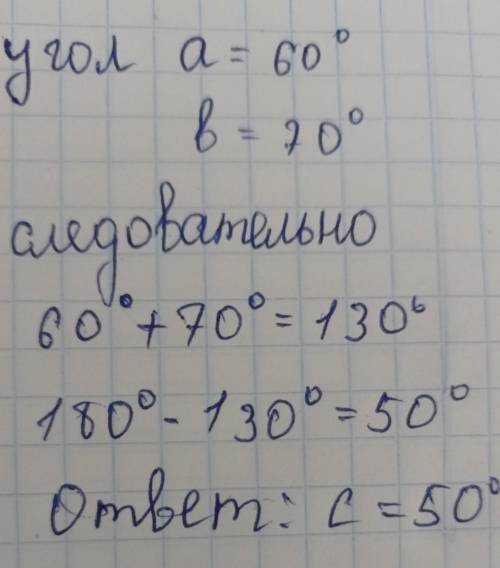 угол a = 60°
в = 70°
следовательно
60° + 70° = 130°
180° - 130° = 50°
Ответ: c = 50°